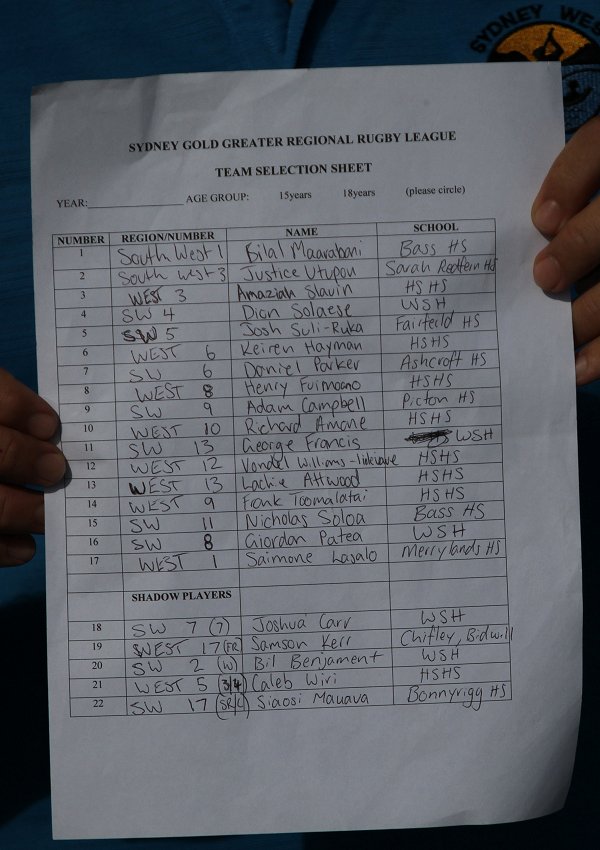 SYDNEY WES
SYDNEY GOLD GREATER REGIONAL RUGBY LEAGUE
TEAM SELECTION SHEET
YEAR:________________ AGE GROUP: 15years 18years (please circle)
NUMBER REGION/NUMBER NAME SCHOOL
1 South West 1 Bilal Maarabani Bass HS
2 South west 3 Justice Utupou Sarah Redfern HS
3 WEST 3 Amaziah Slavin HSHS
4 SW 4 Dion Solaese WSH
5 SW 5 Josh Suli-Ruka Fairfield HS
6 WEST 6 Keiren Hayman HSHS
7 SW 6 Daniel Parker Ashcroft HS
8 WEST 8 Henry Fuimaono HSHS
9 SW 9 Adam Campbell Picton HS
10 WEST 10 Richard Amone HSHS
11 SW 13 George Francis WSH
12 WEST 12 Williams- HSHS
13 WEST 13 Lachie Attwood HSHS
14 WEST 9 Frank Toomalatai HSHS
15 SW 11 Nicholas Soloa Bass HS
16 SW 8 Giordan Patea WSH
17 WEST 1 Saimone Lasalo Merrylands HS
SHADOW PLAYERS
18 SW 7 (7) Joshua Carr WSH
19 WEST 17 (FR) Samson Kerr Chifley, Bidwill
20 SW 2 (W) Bil Benjament WSH
21 WEST 5 (3/4) Caleb Wiri HSHS
22 SW 17 (SR/C) Siaosi Mauava Bonnyrigg HS